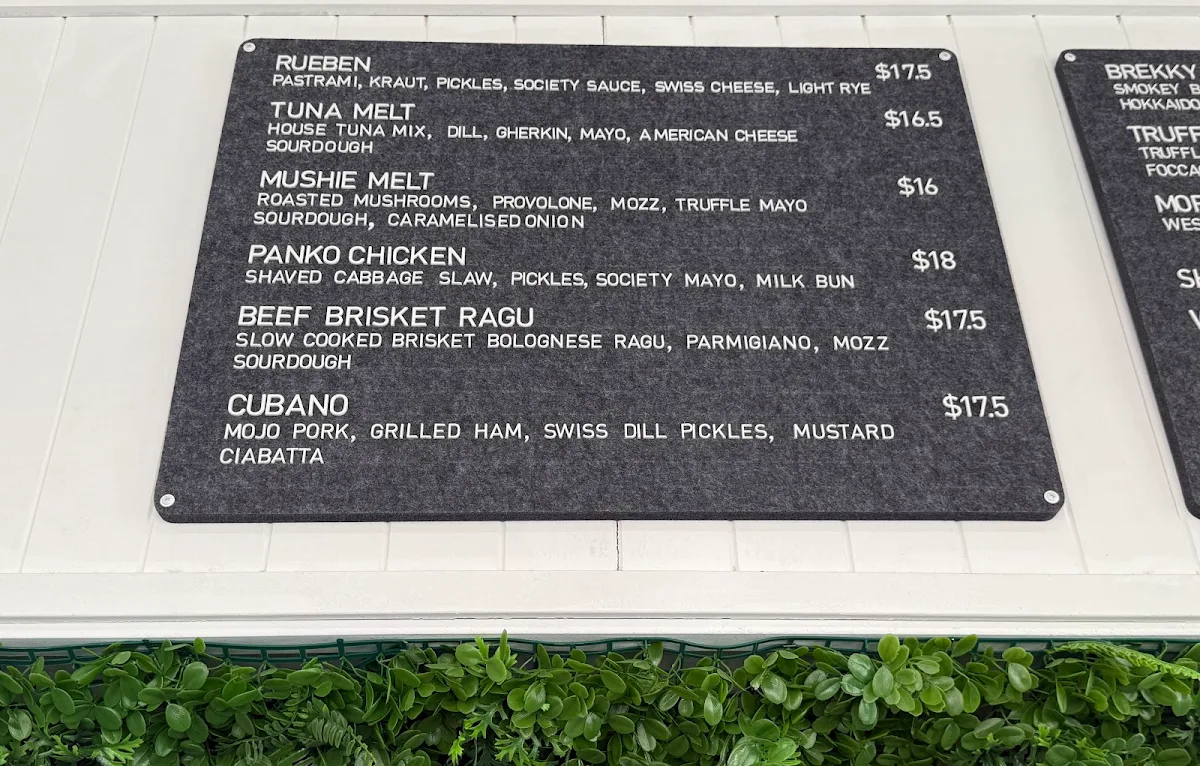 RUEBEN $17.5
PASTRAMI, KRAUT, PICKLES, SOCIETY SAUCE, SWISS CHEESE, LIGHT RYE
TUNA MELT $16.5
HOUSE TUNA MIX, DILL, GHERKIN, MAYO, AMERICAN CHEESE
SOURDOUGH
MUSHIE MELT $16
ROASTED MUSHROOMS, PROVOLONE, MOZZ, TRUFFLE MAYO
SOURDOUGH, CARAMELISED ONION
PANKO CHICKEN $18
SHAVED CABBAGE SLAW, PICKLES, SOCIETY MAYO, MILK BUN
BEEF BRISKET RAGU $17.5
SLOW COOKED BRISKET BOLOGNESE RAGU, PARMIGIANO, MOZZ
SOURDOUGH
CUBANO $17.5
MOJO PORK, GRILLED HAM, SWISS DILL PICKLES, MUSTARD
CIABATTA
BREKKY
SMOKEY
HOKKAIDO